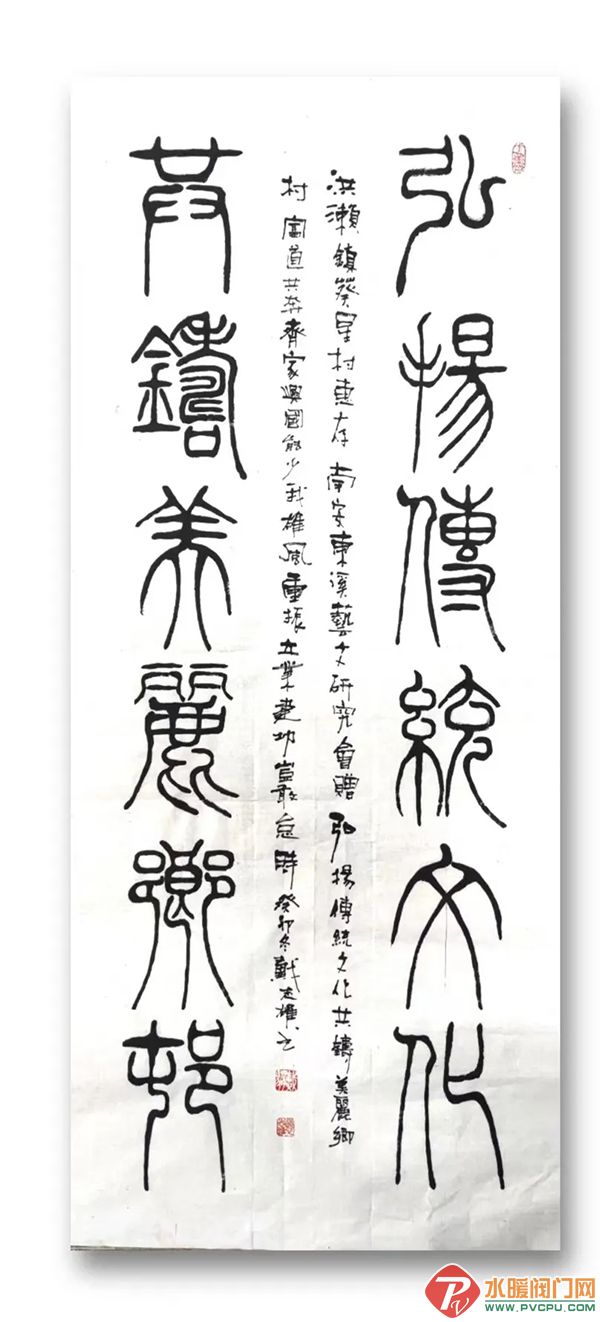 弘揚傳統文化
洪瀨鎮葵星村惠存 南安東溪藝文研究會贈 弘揚傳統文化共鑄美麗鄉
村 富道共奔齊家興國能少我雄風重振立業建功豈敢怠時 癸卯冬戴志雄书
共鑄美麗鄉邨
水暖阀门网
WWW.PVCPU.COM